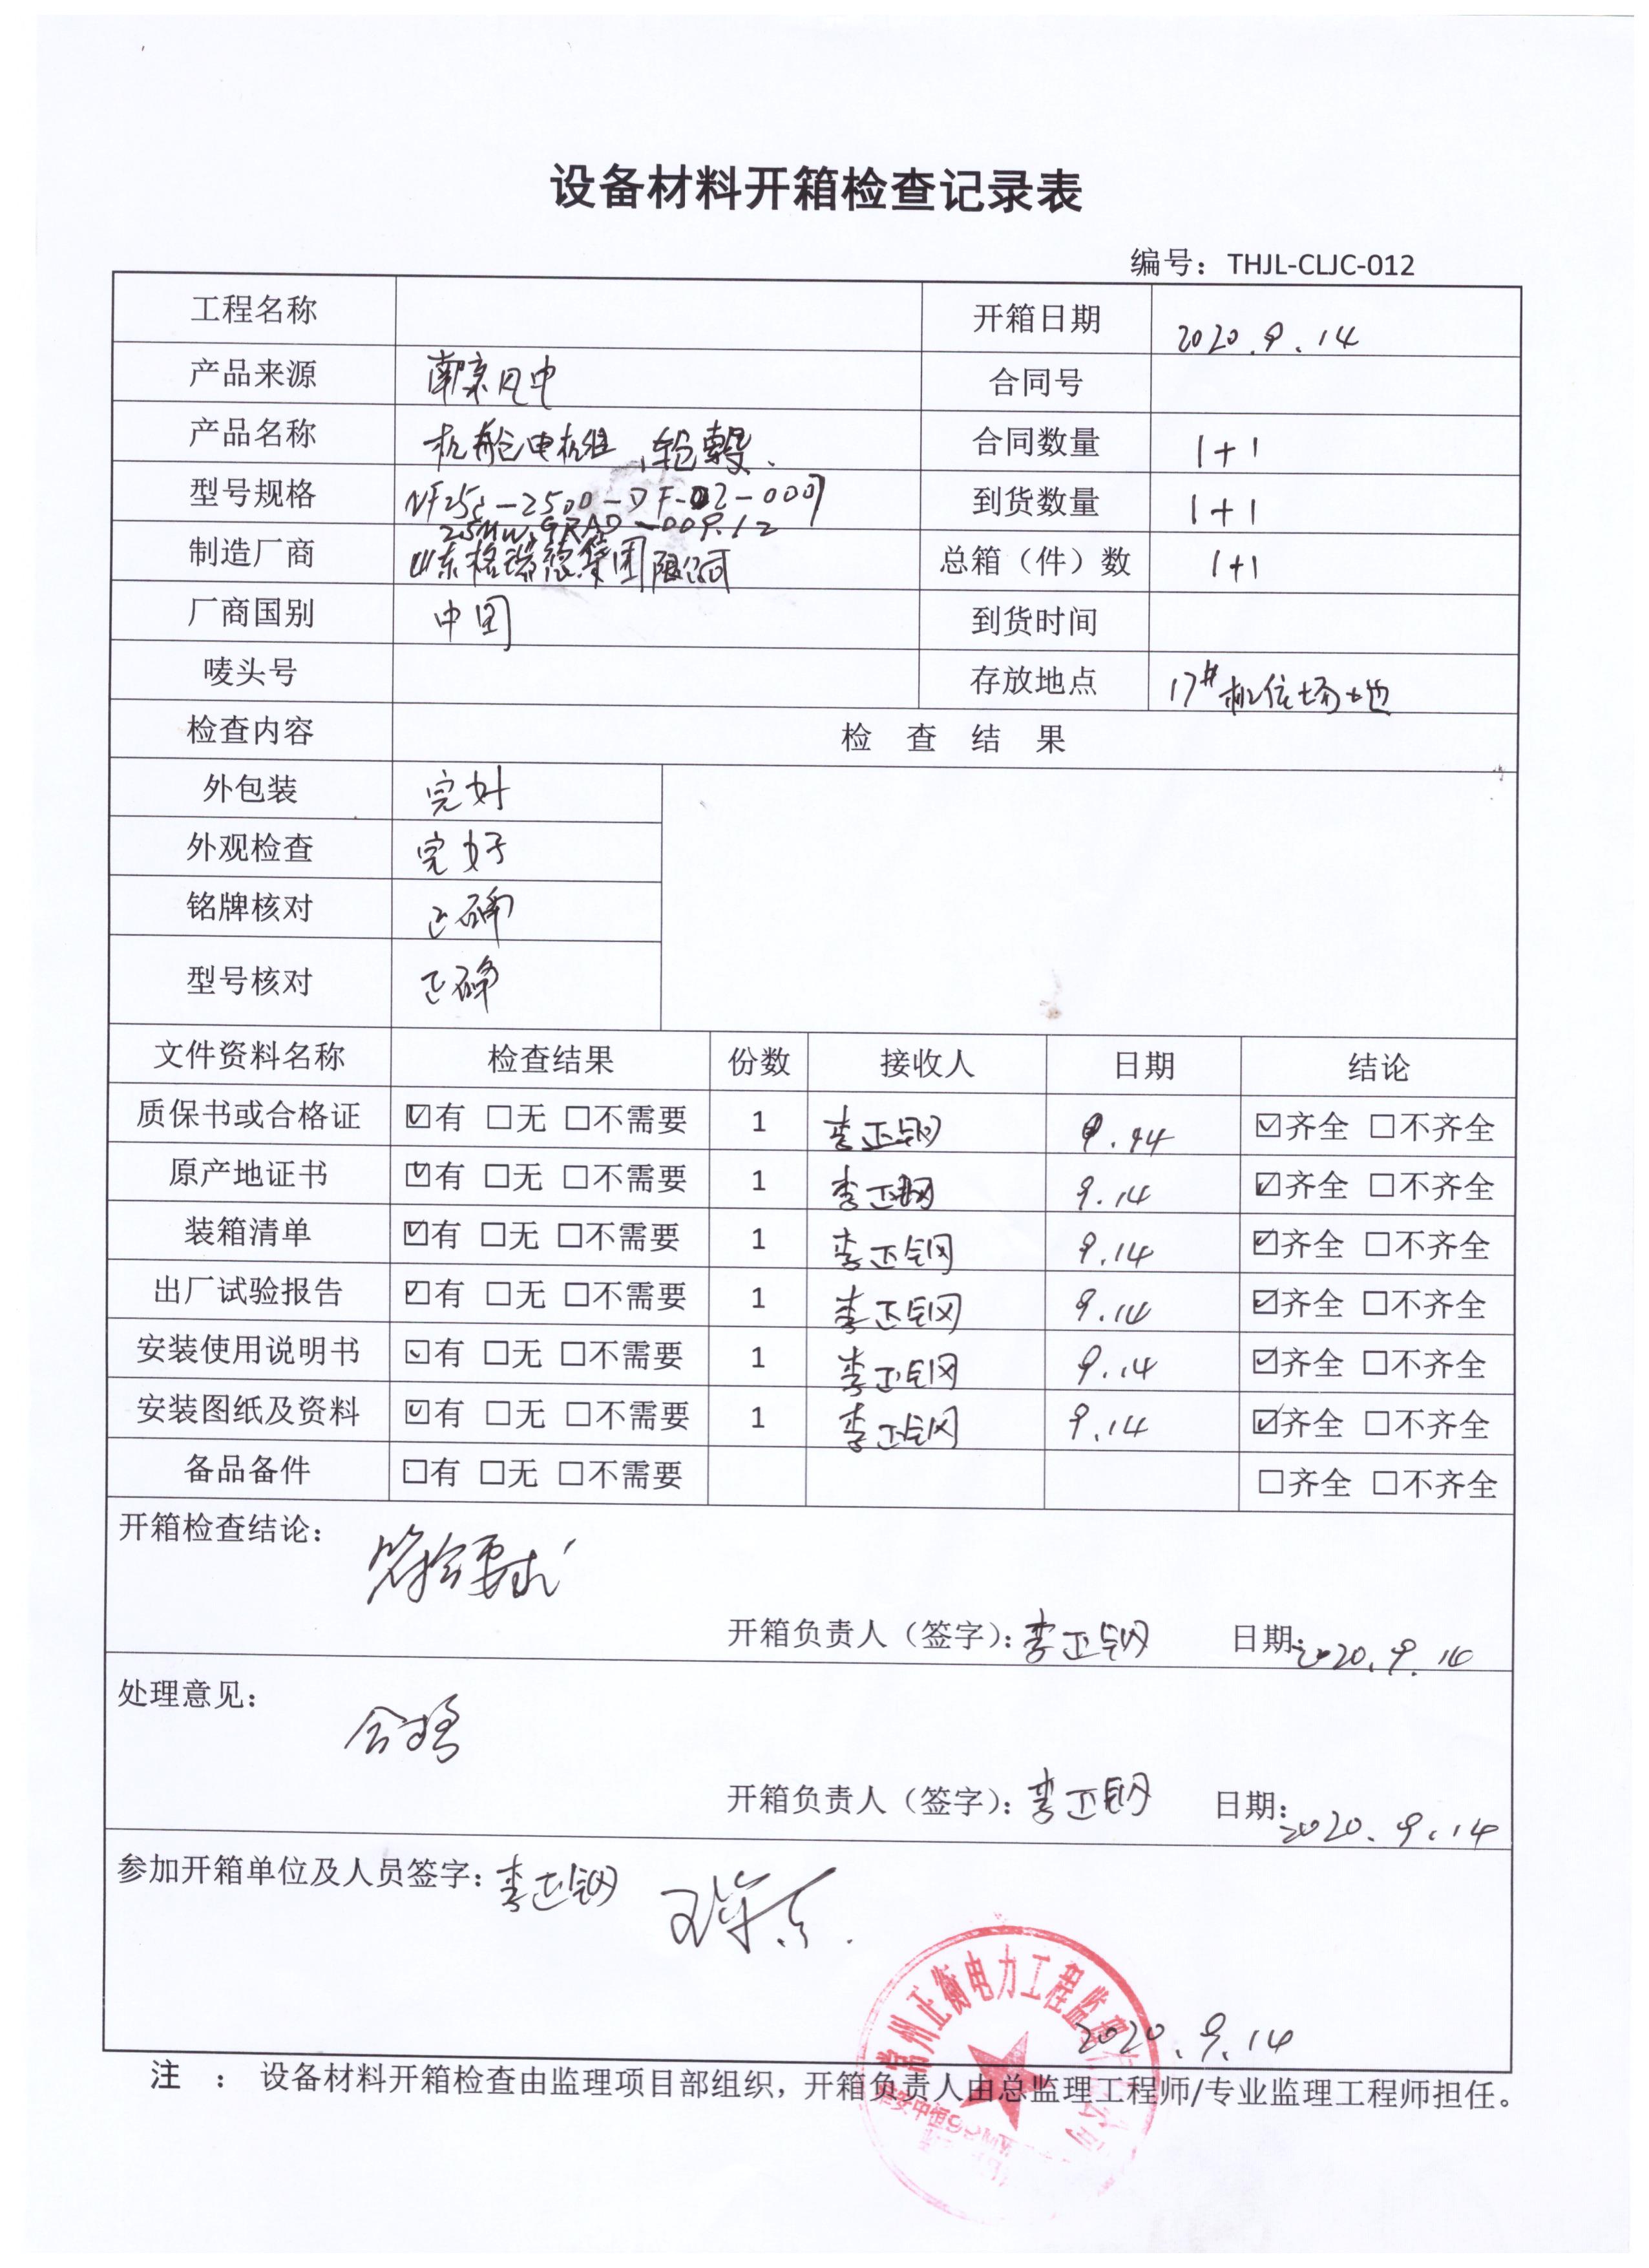 设备材料开箱检查记录表
编号：THJL-CLJC-012
工程名称 开箱日期 2020.9.14
产品来源 南京风电 合同号
产品名称 机舱电机组、轮毂、 合同数量 1+1
型号规格 -2500-DF-02-0007 到货数量 1+1
2.5MW.GRAD-009.12
制造厂商 山东格瑞德集团有限公司 总箱（件）数 1+1
厂商国别 中国 到货时间
唛头号 存放地点 17#机位场地
检查内容 检查结果
外包装 完好
外观检查 完好
铭牌核对 正确
型号核对 正确
文件资料名称 检查结果 份数 接收人 日期 结论
质保书或合格证 ☑有 □无 □不需要 1 李正钢 9.14 ☑齐全 □不齐全
原产地证书 ☑有 □无 □不需要 1 李正钢 9.14 ☑齐全 □不齐全
装箱清单 ☑有 □无 □不需要 1 李正钢 9.14 ☑齐全 □不齐全
出厂试验报告 ☑有 □无 □不需要 1 李正钢 9.14 ☑齐全 □不齐全
安装使用说明书 ☑有 □无 □不需要 1 李正钢 9.14 ☑齐全 □不齐全
安装图纸及资料 ☑有 □无 □不需要 1 李正钢 9.14 ☑齐全 □不齐全
备品备件 □有 □无 □不需要 □齐全 □不齐全
开箱检查结论：
符合要求
开箱负责人（签字）：李正钢 日期：2020.9.14
处理意见：
合格
开箱负责人（签字）：李正钢 日期：2020.9.14
参加开箱单位及人员签字：李正钢
常州正衡电力工程监理有限公司
2020.9.14
注 ： 设备材料开箱检查由监理项目部组织，开箱负责人由总监理工程师/专业监理工程师担任。